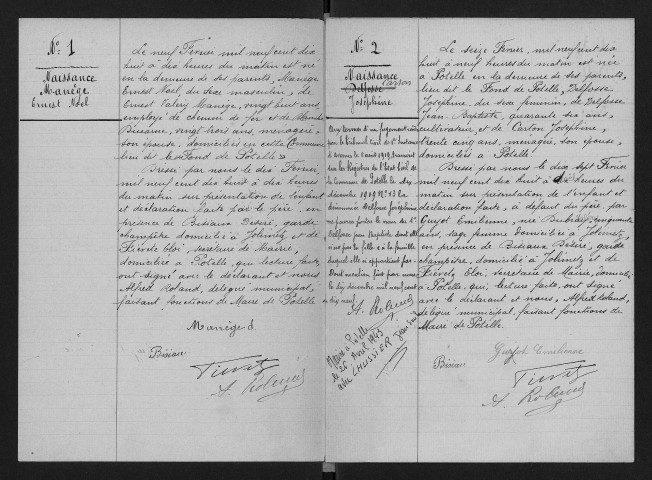 N° 1
Naissance
Manège
Ernest Noel
Le neuf Février mil neuf cent dix
huit à dix heures du matin est né
en la demeure de ses parents, Manège
Ernest Noël, du sexe masculin, de
Ernest Valéry Manège, vingt huit ans,
employé de chemin de fer et de
vingt trois ans, ménagère,
son épouse, domiciliés en cette Commune
lieu dit le Fond de Potelle
Dressé par nous le dix Février,
mil neuf cent dix huit à dix heures
du matin sur présentation de l'enfant
et déclaration faite par le père, en
présence de Bésiaux Désiré, garde
champêtre domicilié à Jolimetz et de
Fiévet Eloi, secrétaire de Mairie,
domicilié à Potelle, qui lecture faite,
ont signé avec le déclarant et nous
Alfred Roland, délégué municipal,
faisant fonctions de Maire de Potelle
Manège E.
Bésiaux
Fiévet
A. Roland
N° 2
Naissance
Delfosse Carton
Joséphine
Aux termes d'un jugement rendu
par le tribunal civil de 1re Instance
d'Avesnes le août 1919, transcrit
sur les Registres de l'Etat Civil de
la Commune de Potelle le dix
décembre 1919 N° 13 La
dénommée Delfosse Joséphine
ne pourra porter le nom de
Delfosse Jean Baptiste dont elle
n'est pas la fille et à la famille
duquel elle n'appartient pas.
Dont mention, fait par nous
le dix décembre mil neuf cent
dix neuf.
A. Roland
Mariée à Potelle
le 26 Avril 1943
avec LHUSSIER Jean
Le seize Février, mil neuf cent dix
huit à neuf heures du matin est née
à Potelle en la demeure de ses parents,
lieu dit le Fond de Potelle, Delfosse
Joséphine, du sexe féminin, de Delfosse
Jean Baptiste, quarante six ans,
cultivateur, et de Carton Joséphine,
trente cinq ans, ménagère, son épouse,
domiciliés à Potelle.
Dressé par nous le dix sept Février
mil neuf cent dix huit à heures du
matin sur présentation de l'enfant et
déclaration faite, à défaut du père, par
Guyot Emilienne, née cinquante
ans, sage femme domiciliée à Jolimetz,
en présence de Bésiaux Désiré, garde
champêtre, domicilié à Jolimetz et de
Fiévet Eloi, secrétaire de Mairie, domicilié
à Potelle, qui, lecture faite, ont signé
avec le déclarant et nous, Alfred Roland,
délégué municipal, faisant fonctions de
Maire de Potelle.
Guyot Emilienne
Bésiaux
Fiévet
A. Roland